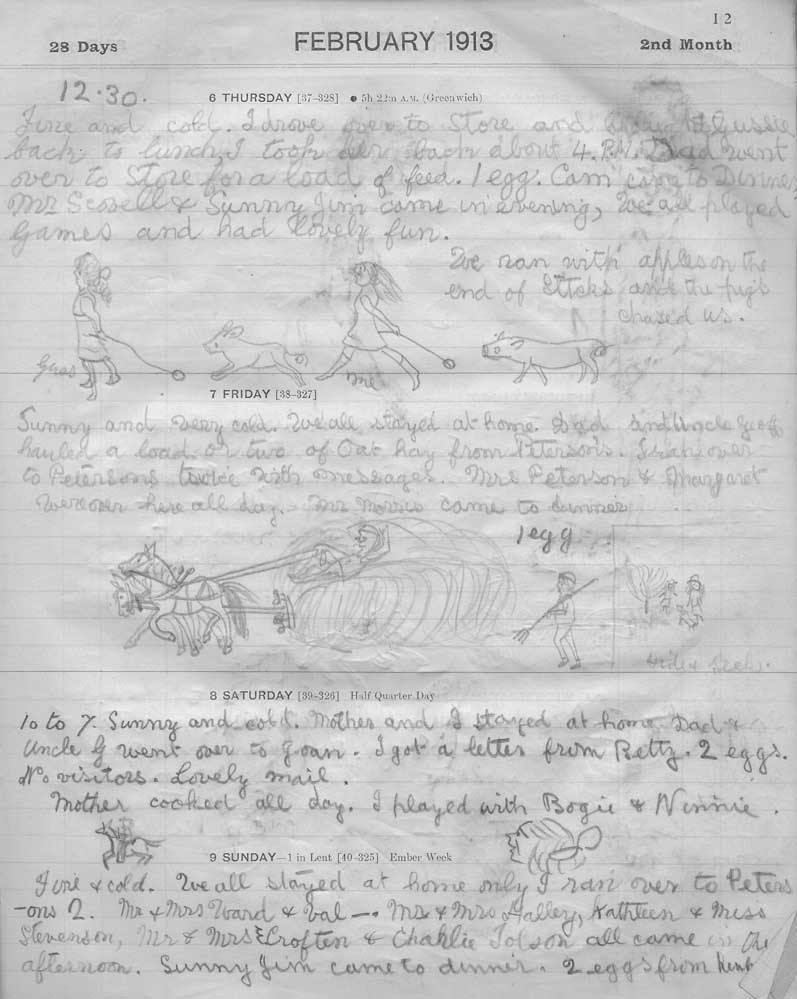 12
28 Days FEBRUARY 1913 2nd Month
12.30.
6 THURSDAY [37-328] ● 5h 22m A.M. (Greenwich)
Fine and cold. I drove over to Store and brought Gussie
back to lunch, I took her back about 4. P.M. Dad went
over to Store for a load of feed. 1 egg. Cam came to Dinner
Mr Scovell & Sunny Jim came in evening, We all played
Games and had lovely fun.
We ran with apples on the
end of sticks and the pigs
chased us.
Gus
me
7 FRIDAY [38-327]
Sunny and very cold. We all stayed at home. Dad and Uncle Geoff
hauled a load or two of Oat hay from Peterson's. I ran over
to Petersons twice with messages. Mrs Peterson & Margaret
were over here all day. Mr Morris came to dinner
1 egg
Hide & Seek.
8 SATURDAY [39-326] Half Quarter Day
10 to 7. Sunny and cold. Mother and I stayed at home. Dad &
Uncle G went over to Goan. I got a letter from Betty. 2 eggs.
No visitors. Lovely mail.
Mother cooked all day. I played with Bogie & Ninnie.
9 SUNDAY—1 in Lent [40-325] Ember Week
Fine & cold. We all stayed at home only I ran over to Peters
-ons 2. Mr & Mrs Ward & Val —. Mr & Mrs Halley, Kathleen & Miss
Stevenson, Mr & Mrs Croften & Charlie Tolson all came in the
afternoon. Sunny Jim came to dinner. 2 eggs from